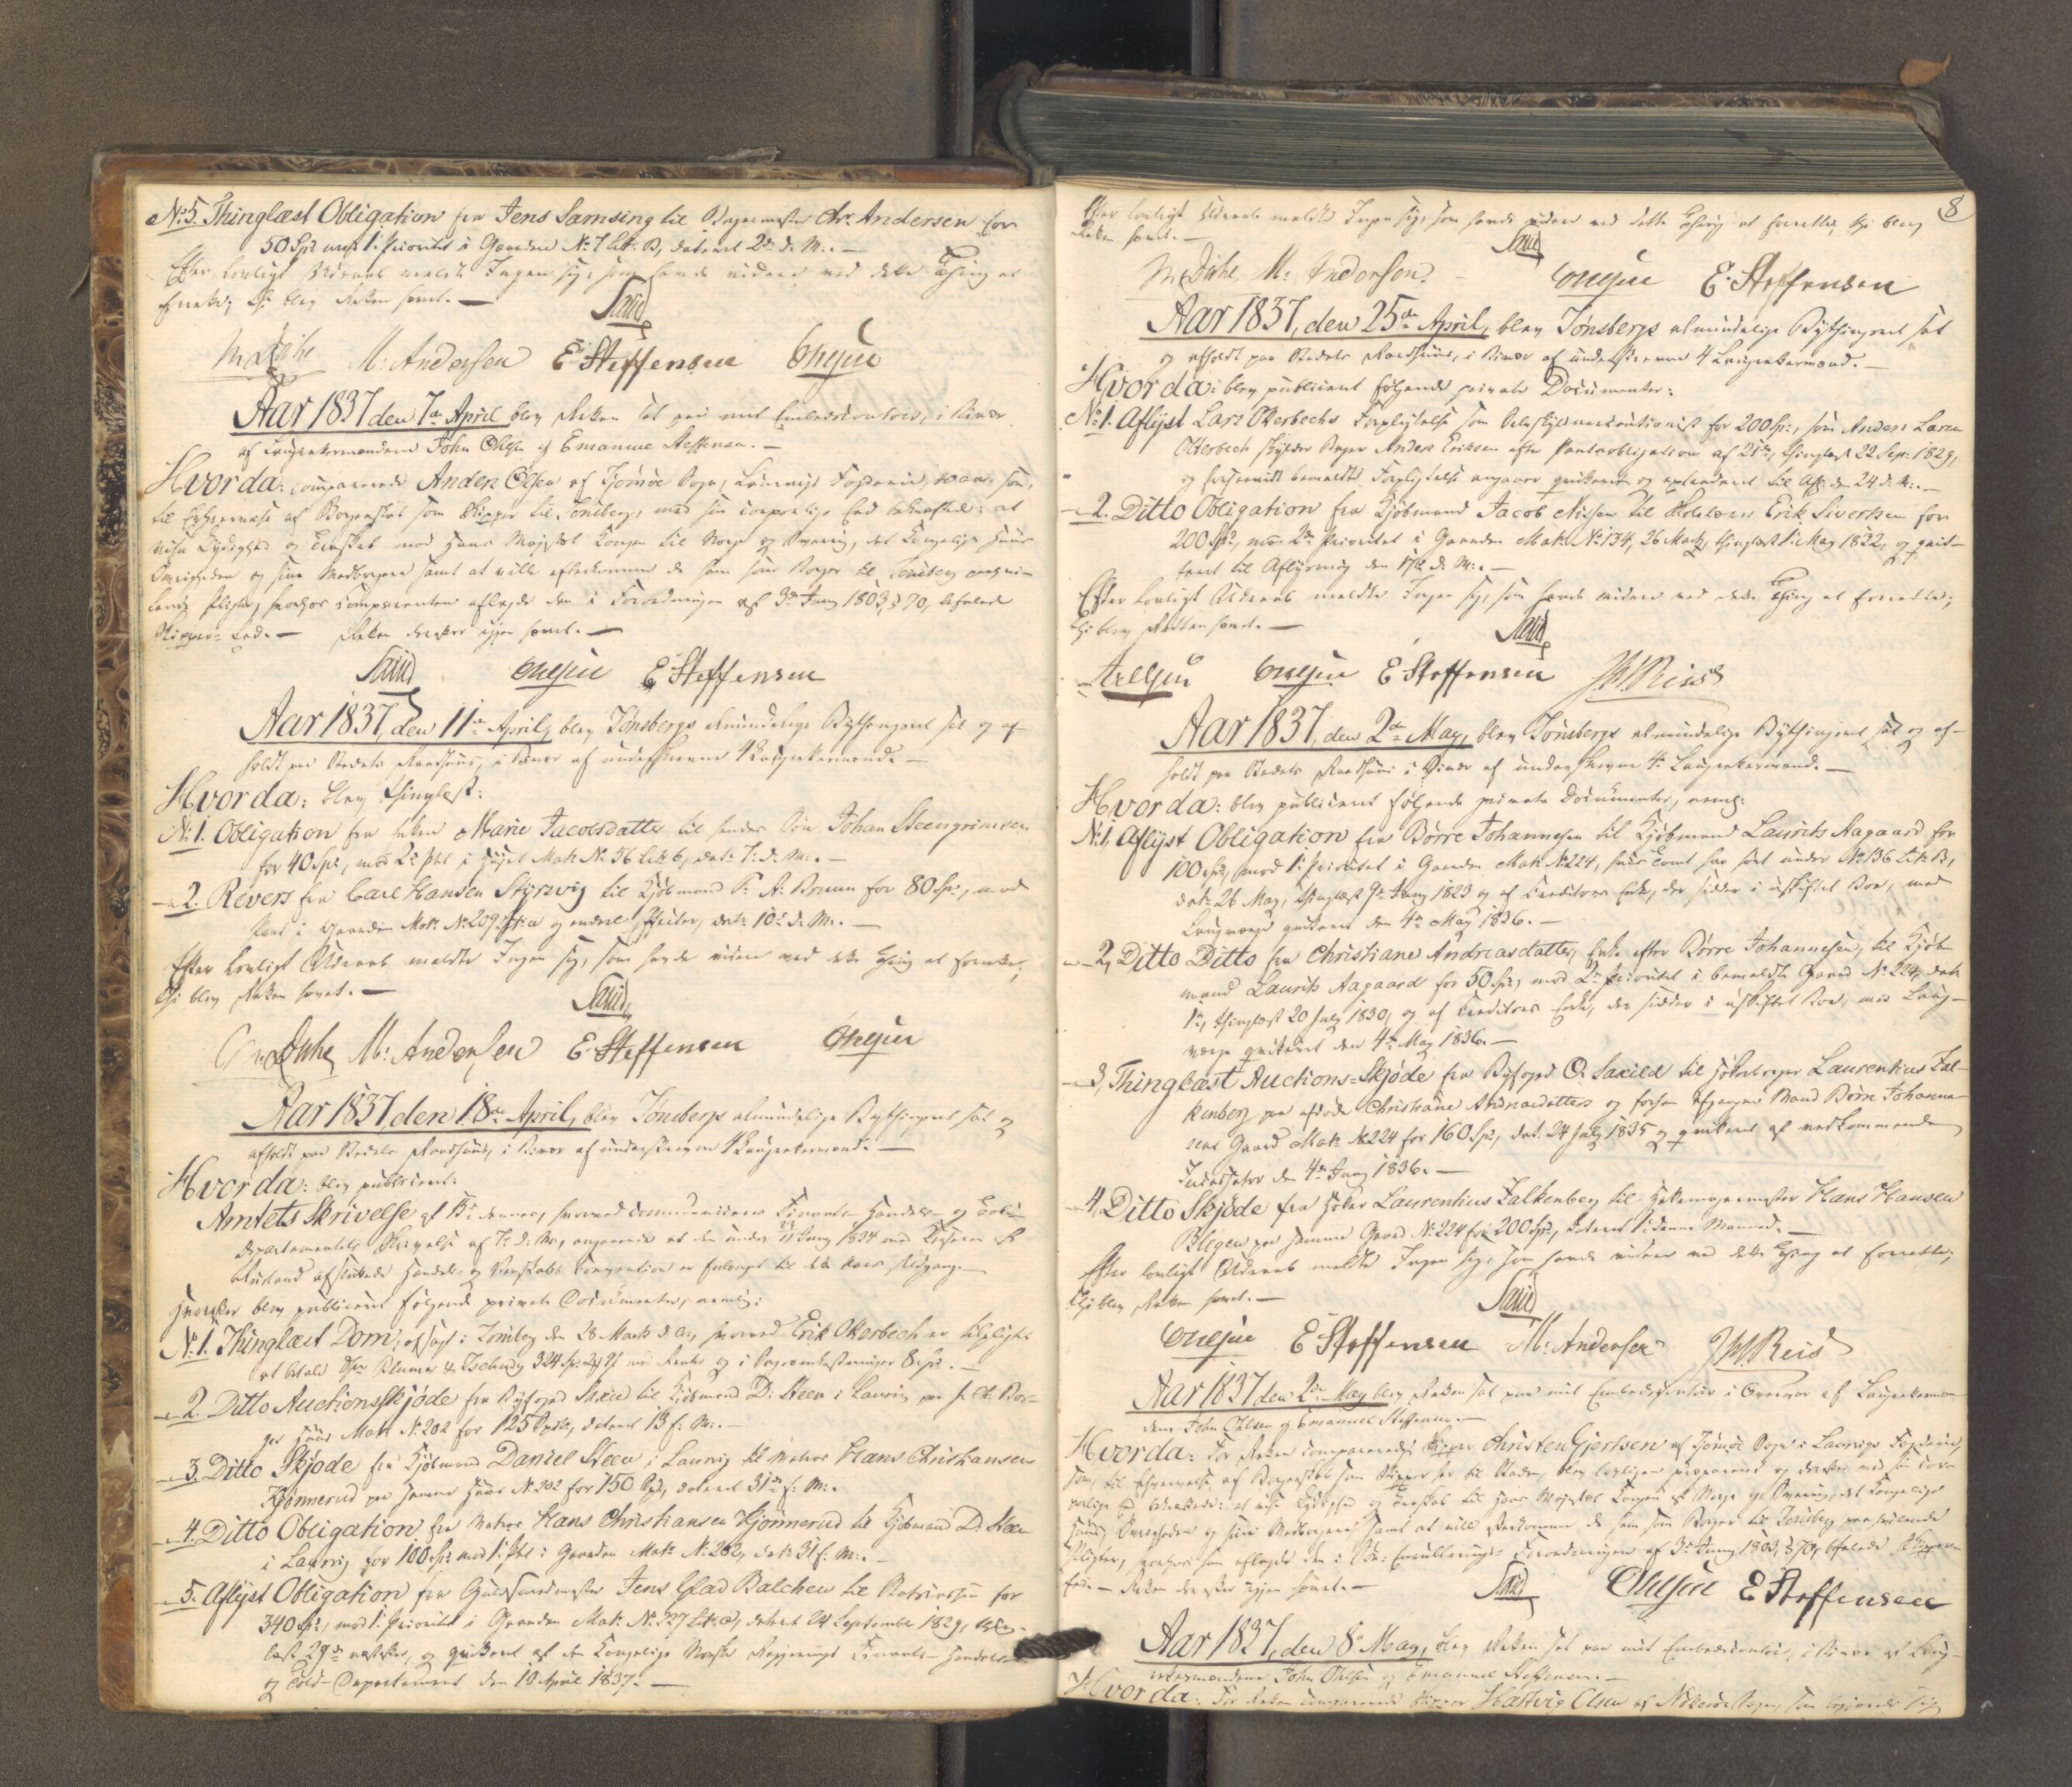 No 5. Thinglæst Obligation fra Jens Samsing til Chr. Andersen for
50 Spd mod 1ste Prioritet i Gaarden No 7 Litr. B, dateret 2den d. M. —
Efter lovligt Udraab meldte Ingen sig, som havde videre ved dette Thing at
forrette, thi blev Retten hævet. —
Saxild
M. Andersen E. Steffensen Ohlsen
Aar 1837 den 7de April blev Retten sat paa mit Embedscontoir, i Overvær
af Laugrettesmændene John Ohlsen og Emanuel Steffensen. —
Hvorda: comparerede Anders Olsen af Tjømøe Sogn, Laurvigs Fogderie, som,
til Erhvervelse af Borgerskab som Skipper til Tønsberg, med sin corporlige Eed bekræftede: at
vise Lydighed og Troskab mod Hans Majestæt Kongen til Norge og Sverrig, det Kongelige Huus
Øvrigheden og sine Medborgere samt at ville efterkomme de ham som Borger til Tønsberg paahvi-
lende Pligter, hvorhos Comparenten aflagde den i Forordningen af 3die Juny 1803, § 70, befalede
Skipper-Eed. — Retten derefter igjen hævet. —
Saxild Ohlsen E Steffensen
Aar 1837, den 11te April, blev Tønsbergs almindelige Bythingsret sat og af-
holdt paa Stedets Raadhuus, i Overvær af underskrevne 4 Laugrettesmænd. —
Hvorda: blev thinglæst:
No 1. Obligation fra Enken Marie Jacobsdatter til hendes Søn Johan Steengrimsen
for 40 Spd, mod 2den Prt i Huset Matr. No 56 Litr. b, datr. 7de d. M. —
— 2. Revers fra Carl Hansen Styrvig til Kjøbmand Bruun for 80 Spd, mod
Pant i Gaarden Matr. No 209 Litr. a og endeel Effecter, datr. 10de d. M. —
Efter lovligt Udraab meldte Ingen sig, som havde videre ved dette Thing at forrette;
thi blev Retten hævet. —
Saxild
M. Andersen E. Steffensen Ohlsen
Aar 1837, den 18de April, blev Tønsbergs almindelige Bythingsret sat og
afholdt paa Stedets Raadhuus, i Overvær af underskrevne 4 Laugrettesmænd. —
Hvorda: blev publiceret:
Amtets Skrivelse af 15de dennes, hvorved communiceres Finants- Handels- og Told-
departementets Skrivelse af 7de d. M., angaaende at den under Juny 1834 med Keiseren af
Rusland afsluttede Handels- og Venskabs Convention er forlænget til Aars Udgang. —
Hvorefter blev publiceret følgende private Documenter, nemlig:
No 1. Thinglæst Dom, afsagt i Tønsberg den 28 Marts d. A., hvorved Erik Otterbech er tilpligtet
at betale Blumer & Tschudy 324 Spd med Renter og i Procesomkostninger 8 Spd. —
— 2. Ditto Auctionsskjøde fra Byfoged Saxild til Kjøbmand D. Steen i Laurvig paa
Huus Matr. No 202 for 125 Spdlr, dateret 13 f. M. —
— 3. Ditto Skjøde fra Kjøbmand Daniel Steen i Laurvig til Matros Hans Christiansen
Kjønnerud paa samme Huus No 202 for 150 Spd, dateret 31te f. M. —
— 4. Ditto Obligation fra Matros Hans Christiansen Kjønnerud til Kjøbmand D. Steen
i Laurvig for 100 Spd mod 1ste Prt i Gaarden Matr. No 202, datr. 31 f. M. —
— 5. Aflyst Obligation fra Guldsmedmester Jens Glad Balchen til Statscassen for
340 Spd, mod 1ste Prioritet i Gaarden Matr. No 327 Litr. a, dateret 24 September 1829, thing-
læst 29de næstefter, og quitteret af den Kongelige Norske Regjerings Finants- Handels-
og Told-Departement den 10 April 1837. —
8
Efter lovligt Udraab meldte Ingen sig, som havde videre ved dette Thing at forrette, thi blev
Retten hævet. —
Saxild
M. Andersen. Ohlsen E. Steffensen
Aar 1837, den 25de April, blev Tønsbergs almindelige Bythingsret sat
og afholdt paa Stedets Raadhuus, i Overvær af underskrevne 4 Laugrettesmænd. —
Hvorda: blev publiceret følgende private Documenter:
No 1. Aflyst Lars Otterbechs Forpligtelse som Selvskyldnercautionist for 200 Spd, som Anders Larsen
Otterbech skylder Borger Anders Eriksen efter Panteobligation af 21de, thinglæst 22 Sep. 1829,
og forsaavidt bemeldte Forpligtelse angaaer quitteret og extraderet til Afl. den 24 d. M. —
— 2. Ditto Obligation fra Kjøbmand Jacob Nissen til Erik Sivertsen for
200 Spd, mod 2den Prioritet i Gaarden Matr. No 134, 26 Marts, thinglæst 1ste May 1822, og quit-
teret til Aflysning den 17de d. M. —
Efter lovligt Udraab meldte Ingen sig, som havde videre ved dette Thing at forrette;
thi blev Retten hævet. —
Saxild
Ohlsen E Steffensen Reis
Aar 1837, den 2den May, blev Tønsbergs almindelige Bythingsret sat og af-
holdt paa Stedets Raadhuus i Overvær af underskrevne 4 Laugrettesmænd. —
Hvorda: blev publiceret følgende private Documenter, neml:
No 1, Aflyst Obligation fra Børre Johannesen til Kjøbmand Laurits Aagaard for
100 Spd, mod 1ste Prioritet i Gaarden Matr. No 224, hvis Tomt har hørt under No 136 Litr. B,
datr. 26 May, thinglæst Juny 1823 og af Creditors Enke, der sidder i uskiftet Boe, med
Laugværge quitteret den 4de May 1836. —
— 2, Ditto Ditto fra Christiane Andreasdatter, Enke efter Børre Johannesen, til Kjøb-
mand Laurits Aagaard for 50 Spd, mod 2den Prioritet i bemeldte Gaard No 224, datr.
thinglæst 20 July 1830, og af Creditors Enke, der sidder i uskiftet Boe, med Laug-
værge quitteret den 4de May 1836. —
— 3, Thinglæst Auctions-Skjøde fra Byfoged O. Saxild til Laurentius Fal-
kenberg paa afdøde Christiane Andreasdatters og forhen afgangne Mand Børre Johanne-
sens Gaard Matr. No 224 for 160 Spd, dat. 24 July 1835 og quitteret af vedkommende
Incassator den 4de Juny 1836. —
— 4, Ditto Skjøde fra Høker Laurentius Falkenberg til Hans Hansen
Blegen paa samme Gaard No 224 for 200 Spd, dateret 1ste denne Maaned. —
Efter lovligt Udraab meldte Ingen sig, som havde videre ved dette Thing at forrette;
thi blev Retten hævet. —
Saxild
Ohlsen E Steffensen M. Andersen Reis
Aar 1837 den 2den May blev Retten sat paa mit Embedscontoir i Overvær af Laugrettesmæn-
dene John Ohlsen og Emanuel Steffensen. —
Hvorda: For Retten comparerede Skipper Christen Gjertsen af Tjømøe Sogn i Laurvigs Fogderie,
som, til Erhvervelse af Borgerskab som Skipper her til Staden, blev lovligen præpareret og derefter med sin cor-
porlige Eed bekræftede: at vise Lydighed og Troskab til Hans Majestæt Kongen af Norge og Sverrig, det Kongelige
Huus, Øvrigheden og sine Medborgere, samt at ville efterkomme de ham som Borger til Tønsberg paahvilende
Pligter, hvorhos han aflagde den i Søe-Enrullerings-Forordningen af 3die Juny 1803, § 70, befalede Skipper-
Eed. — Retten derefter igjen hævet. —
Saxild Ohlsen E Steffensen
Aar 1837, den 8de May, blev Retten sat paa mit Embedscontoir, i Overvær af Laug-
rettesmændene John Ohlsen og Emanuel Steffensen. —
Hvorda: For Retten comparerede Skipper Hartvig Olsen af Nøtterøe Sogn, som